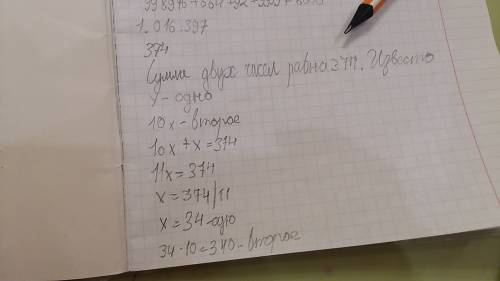 1.016.397
374
Сумма двух чисел равна 374. Известо
x - одно
10x - второе
10x + x = 374
11x = 374
x = 374/11
x = 34 - одно
34 · 10 = 340 - второе